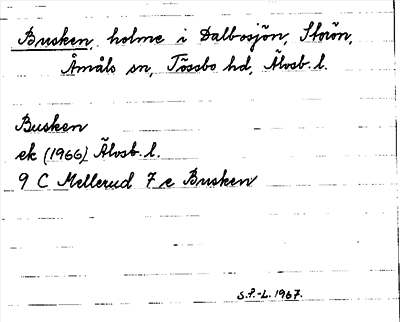 Busken, holme i Dalbosjön, Storön,
Åmåls sn, Tössbo hd, Älvsb. l.
Busken
ek (1966) Älvsb. l.
9 C Mellerud 7 e Busken
S.F.-L. 1967.